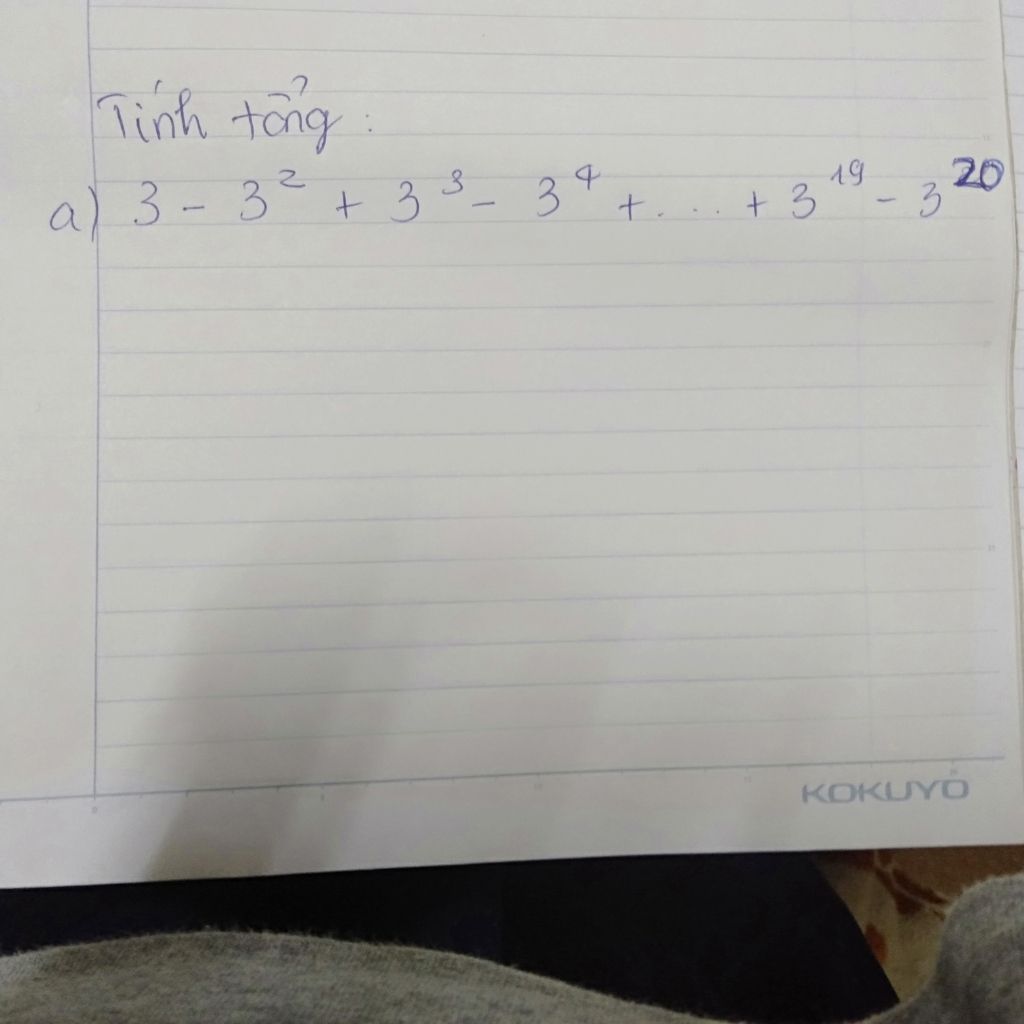 Tính tổng:
a) 3 - 3² + 3³ - 3⁴ + .... + 3¹⁹ - 3²⁰
KOKUYO